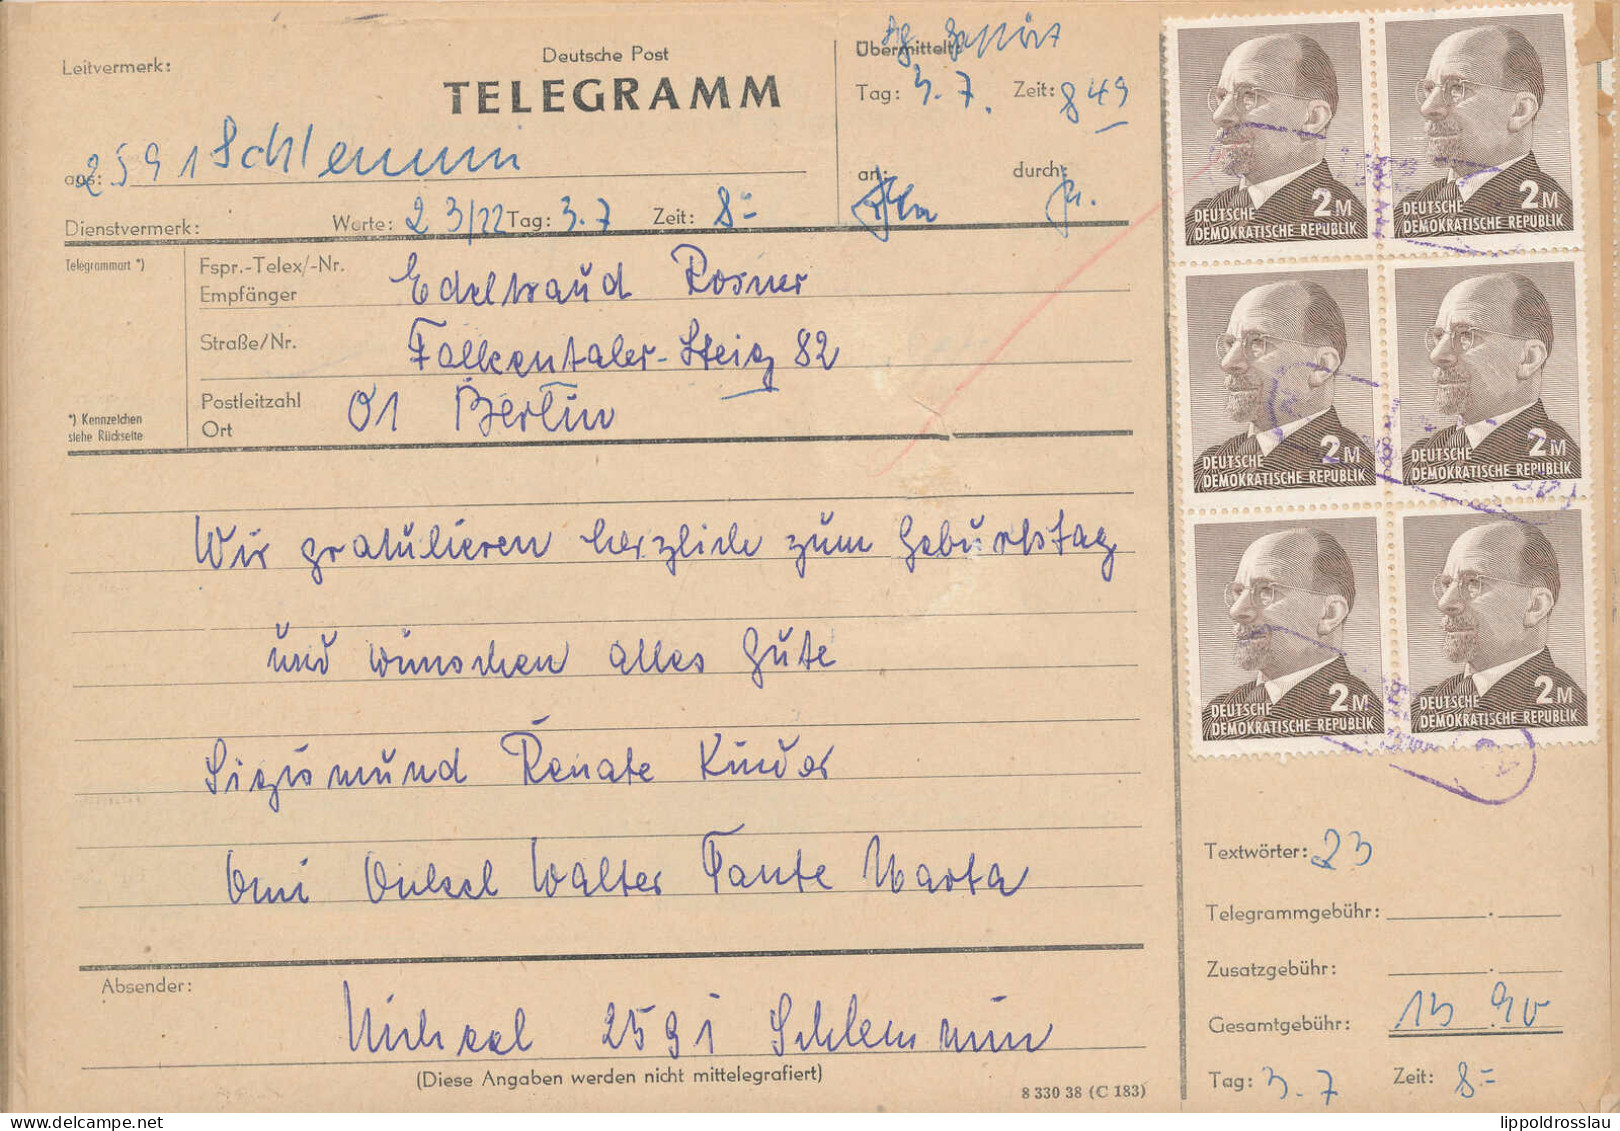 Leitvermerk:
Deutsche Post
TELEGRAMM
Übermittelt:
Tag: 3. 7. Zeit: 8 49
aus: 2591 Schlemmin
an:
durch:
Dienstvermerk:
Worte: 23/22 Tag: 3. 7 Zeit: 8=
Telegrammart *)
Fspr.-Telex/-Nr.
Empfänger
Edeltraud Rosner
Straße/Nr.
Falkentaler-Steig 82
Postleitzahl
Ort
01 Berlin
*) Kennzeichen
siehe Rückseite
Wir gratulieren herzlich zum Geburtstag
und wünschen alles Gute
Sigismund Renate Kinder
Omi Onkel Walter Tante Marta
Absender:
Michael 2591 Schlemmin
(Diese Angaben werden nicht mittelegrafiert)
8 330 38 (C 183)
2M
DEUTSCHE
DEMOKRATISCHE REPUBLIK
2M
DEUTSCHE
DEMOKRATISCHE REPUBLIK
2M
DEUTSCHE
DEMOKRATISCHE REPUBLIK
2M
DEUTSCHE
DEMOKRATISCHE REPUBLIK
2M
DEUTSCHE
DEMOKRATISCHE REPUBLIK
2M
DEUTSCHE
DEMOKRATISCHE REPUBLIK
Textwörter: 23
Telegrammgebühr:
Zusatzgebühr:
Gesamtgebühr: 13 90
Tag: 3. 7 Zeit: 8=
lippoldrosslau